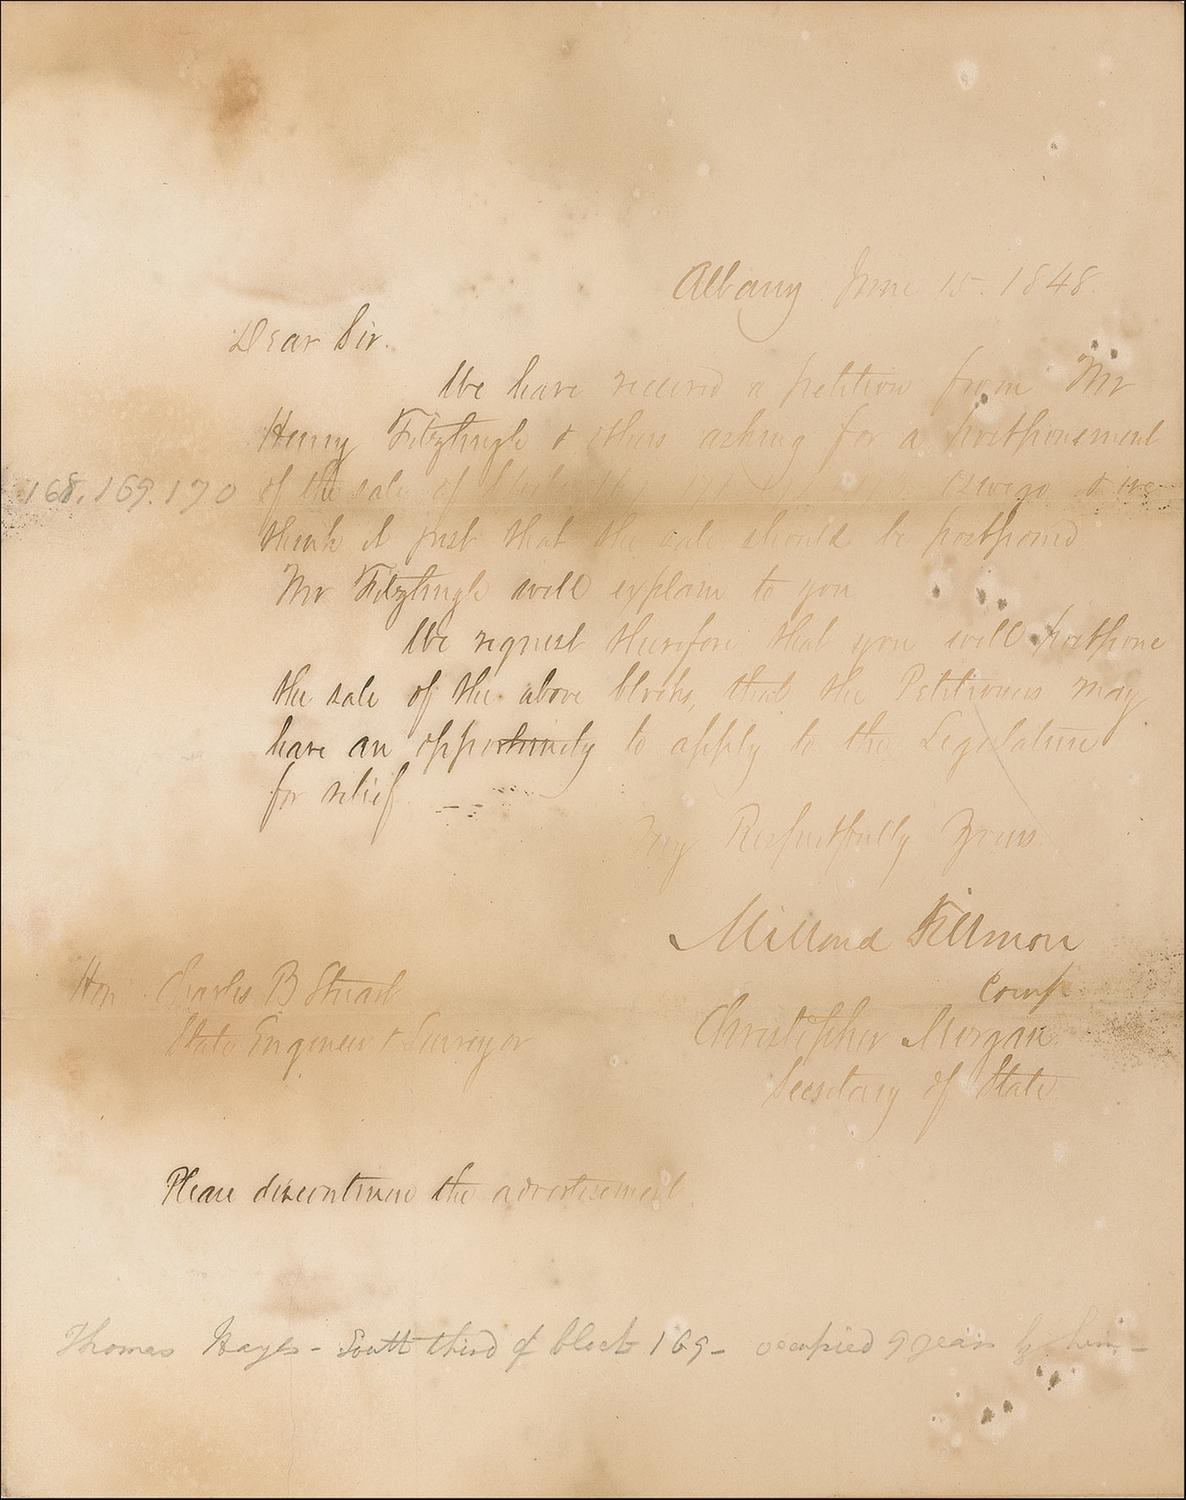 Albany June 15. 1848.
Dear Sir.
We have received a petition from Mr
Henry Fitzhugh & others asking for a postponement
168, 169. 170 of the sale of Oswego & we
think it just that the sale should be postponed
Mr Fitzhugh will explain to you
We request therefore that you will postpone
the sale of the above blocks, that the Petitioners may
have an opportunity to apply to the Legislature
for relief. –
Very Respectfully Yours
Millard Fillmore
Comp
Hon Charles B Stuart
State Engineer & Surveyor
Christopher Morgan
Secretary of State
Please discontinue the advertisement
Thomas Hayes – South third of block 169 – occupied 9 years by him –